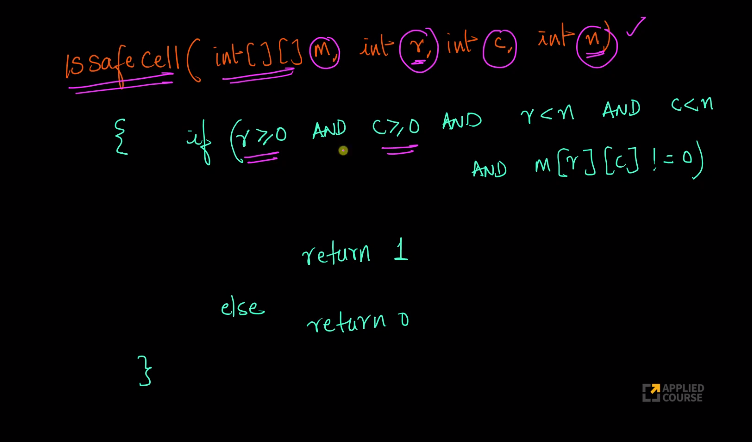 issafecell ( int[][] M, int r, int c, int n) ✓
{ if (r≥0 AND c≥0 AND r<n AND c<n
AND M[r][c] != 0)
return 1
else
return 0
}
APPLIED
COURSE